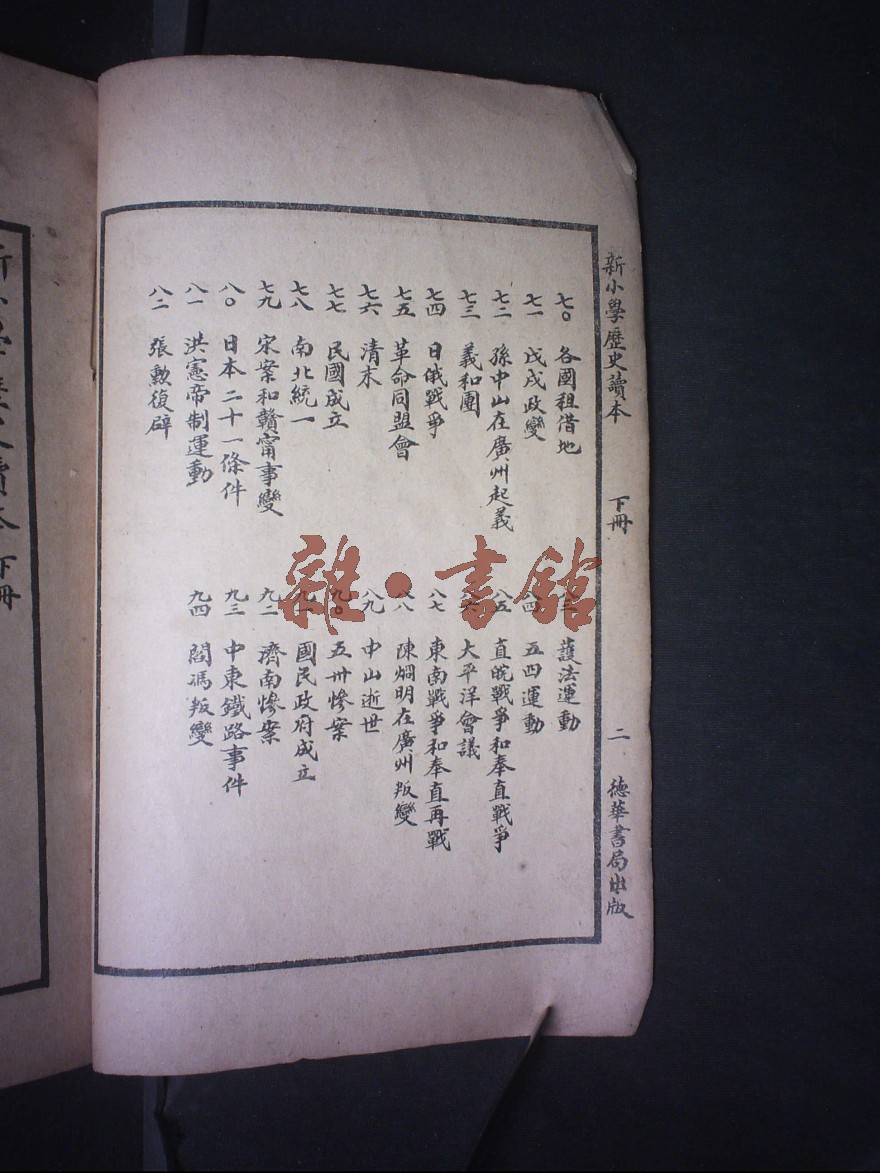 新小學歷史讀本 下冊 二 德華書局出版
七〇 各國租借地
七一 戊戌政變
七二 孫中山在廣州起義
七三 義和團
七四 日俄戰爭
七五 革命同盟會
七六 清末
七七 民國成立
七八 南北統一
七九 宋案和贛甯事變
八〇 日本二十一條件
八一 洪憲帝制運動
八二 張勲復辟
八三 護法運動
八四 五四運動
八五 直皖戰爭和奉直戰爭
八六 大平洋會議
八七 東南戰爭和奉直再戰
八八 陳烱明在廣州叛變
八九 中山逝世
九〇 五卅慘案
九一 國民政府成立
九二 濟南慘案
九三 中東鐵路事件
九四 閻馮叛變
雜·書館
新小學歷史讀本 下冊